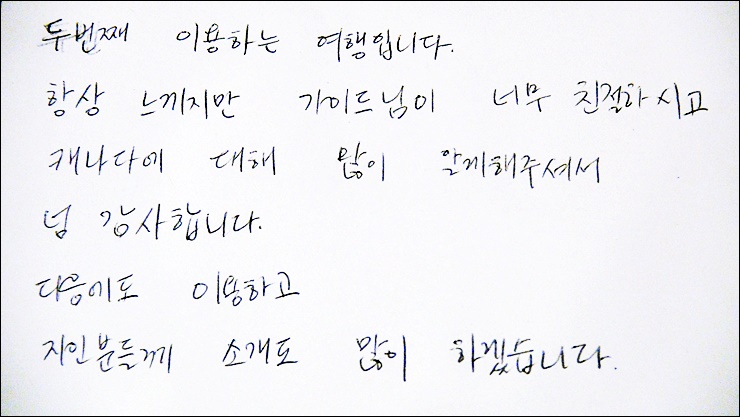 두번째 이용하는 여행입니다.
항상 느끼지만 가이드님이 너무 친절하시고
캐나다에 대해 많이 알게해주셔서
넘 감사합니다.
다음에도 이용하고
지인분들께 소개도 많이 하겠습니다.